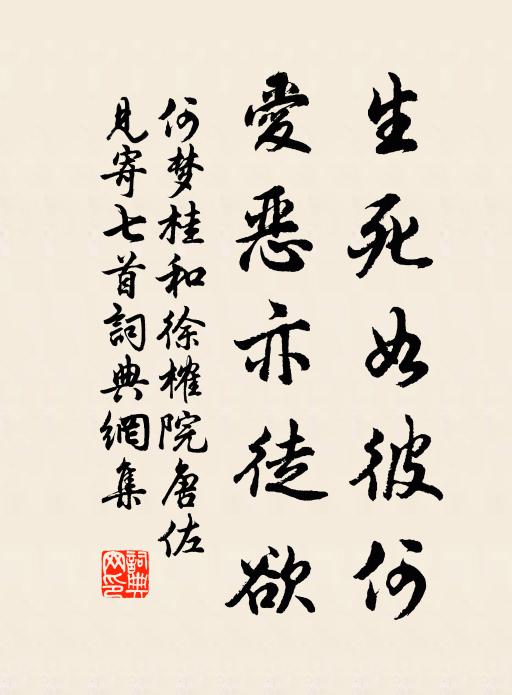 生死如彼何
愛惡亦徒欲
何梦桂和徐榷院唐佐
見寄七首詞典網集
詞典網印